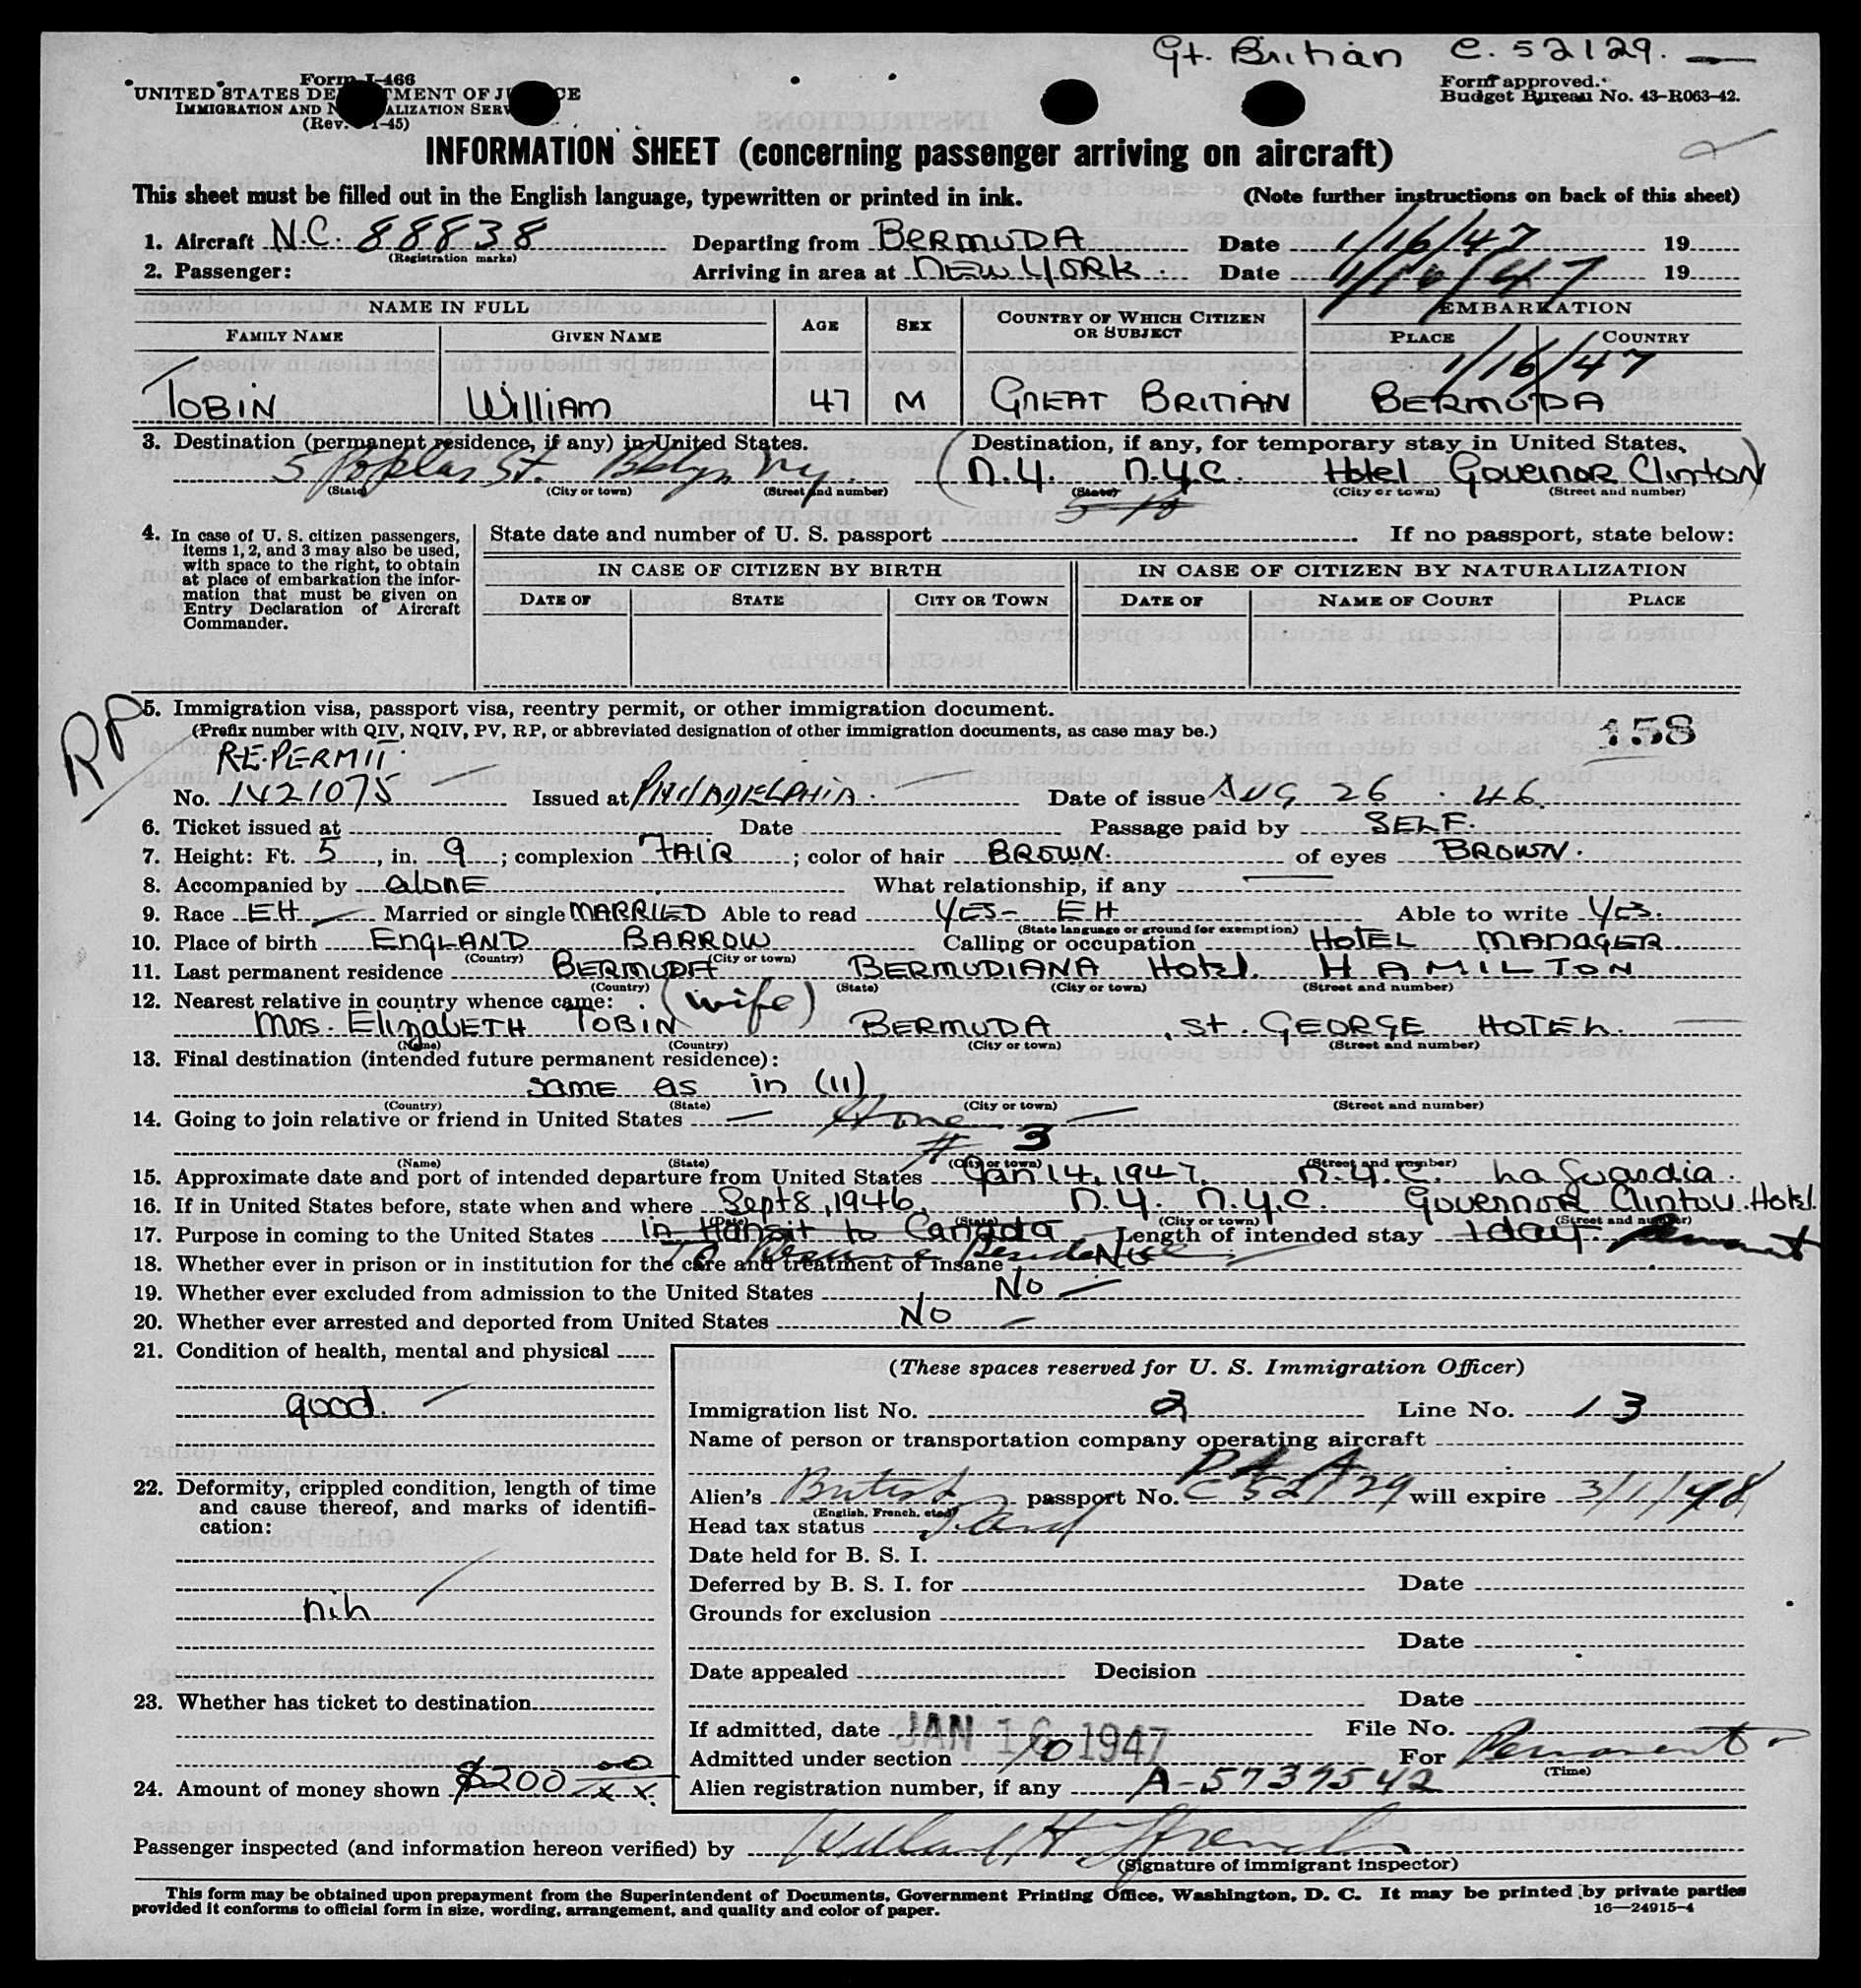 Gt. Britian C. 52129. —
Form I-466
UNITED STATES DEPARTMENT OF JUSTICE
IMMIGRATION AND NATURALIZATION SERV
(Rev. 1-45)
Form approved.
Budget Bureau No. 43-R063-42.
INFORMATION SHEET (concerning passenger arriving on aircraft)
This sheet must be filled out in the English language, typewritten or printed in ink. (Note further instructions on back of this sheet)
1. Aircraft N.C. 88838 Departing from BERMUDA Date 1/16/47 19
(Registration marks)
2. Passenger: Arriving in area at NEW YORK. Date 1/16/47 19
NAME IN FULL AGE SEX COUNTRY OF WHICH CITIZEN OR SUBJECT EMBARKATION
FAMILY NAME GIVEN NAME PLACE COUNTRY
1/16/47
TOBIN WilliAM 47 M GREAT BRITIAN BERMUDA
3. Destination (permanent residence, if any) in United States. Destination, if any, for temporary stay in United States.
5 Poplar St. Bklyn Ny. (N.Y. N.Y.C. Hotel Governor Clinton)
(State) (City or town) (Street and number) (State) (City or town) (Street and number)
4. In case of U. S. citizen passengers, items 1, 2, and 3 may also be used, with space to the right, to obtain at place of embarkation the information that must be given on Entry Declaration of Aircraft Commander.
State date and number of U. S. passport . If no passport, state below:
IN CASE OF CITIZEN BY BIRTH IN CASE OF CITIZEN BY NATURALIZATION
DATE OF STATE CITY OR TOWN DATE OF NAME OF COURT PLACE
RP
5. Immigration visa, passport visa, reentry permit, or other immigration document.
(Prefix number with QIV, NQIV, PV, RP, or abbreviated designation of other immigration documents, as case may be.)
158
RE.PERMIT.
No. 1421075 Issued at PHILADELPHIA. Date of issue AUG 26. 46.
6. Ticket issued at Date Passage paid by SELF.
7. Height: Ft. 5, in. 9; complexion FAIR; color of hair BROWN. of eyes BROWN.
8. Accompanied by alone What relationship, if any —
9. Race EH Married or single MARRIED Able to read YES- EH Able to write YES.
(State language or ground for exemption)
10. Place of birth ENGLAND BARROW Calling or occupation HOTEL MANAGER
(Country) (City or town)
11. Last permanent residence BERMUDA BERMUDIANA Hotel. HAMILTON
(Country) (State) (City or town) (Street and number)
12. Nearest relative in country whence came: (wife)
Mrs. ElizabETH TOBIN BERMUDA, St. GEORGE HOTEL.
(Name) (Country) (City or town) (Street and number)
13. Final destination (intended future permanent residence):
SAME AS in (11)
(Country) (State) (City or town) (Street and number)
14. Going to join relative or friend in United States — Home —
# 3
(Name) (State) (City or town) (Street and number)
15. Approximate date and port of intended departure from United States Jan 14, 1947. N.Y.C. La Guardia.
16. If in United States before, state when and where Sept 8, 1946, N.Y. N.Y.C. Governor Clinton Hotel.
(Date) (State) (City or town) (Street and number)
17. Purpose in coming to the United States in transit to Canada. Length of intended stay 1 day. Permanent
To Resume Residence
18. Whether ever in prison or in institution for the care and treatment of insane No
19. Whether ever excluded from admission to the United States No —
20. Whether ever arrested and deported from United States No —
21. Condition of health, mental and physical
good.
22. Deformity, crippled condition, length of time and cause thereof, and marks of identification:
nih
23. Whether has ticket to destination
24. Amount of money shown $200 00/xx.
(These spaces reserved for U. S. Immigration Officer)
Immigration list No. 2 Line No. 13
Name of person or transportation company operating aircraft
P A A
Alien's British passport No. C 52129 will expire 3/1/48
(English, French, etc.)
Head tax status
Date held for B. S. I.
Deferred by B. S. I. for Date
Grounds for exclusion
Date
Date appealed Decision
Date
If admitted, date JAN 16 1947 File No.
Admitted under section For Permanent
(Time)
Alien registration number, if any A-5737542
Passenger inspected (and information hereon verified) by
(Signature of immigrant inspector)
This form may be obtained upon prepayment from the Superintendent of Documents, Government Printing Office, Washington, D. C. It may be printed by private parties
provided it conforms to official form in size, wording, arrangement, and quality and color of paper. 16—24915-4